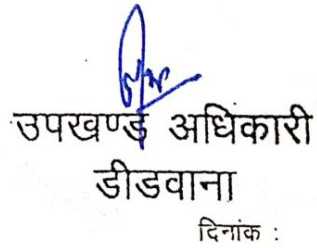 उपखण्ड अधिकारी
डीडवाना
दिनांक :